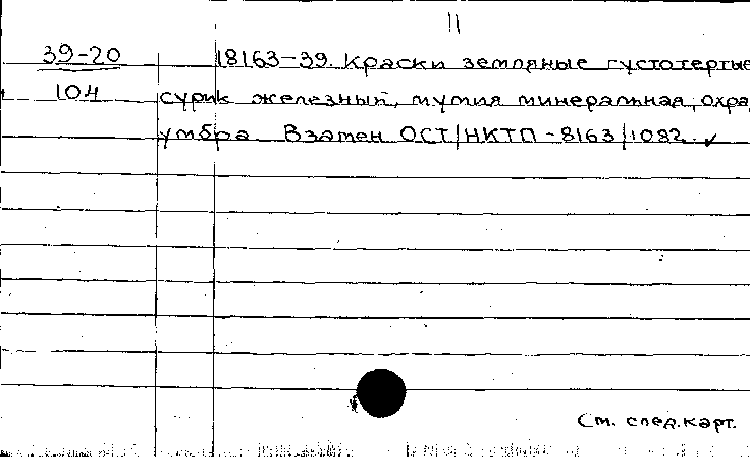 11
39-20 18163-39. Краски земляные густотертые
104 сурик железный, мумия минеральная, охра,
умбра Взамен ОСТ/НКТП-8163/1082.
См. след. карт.